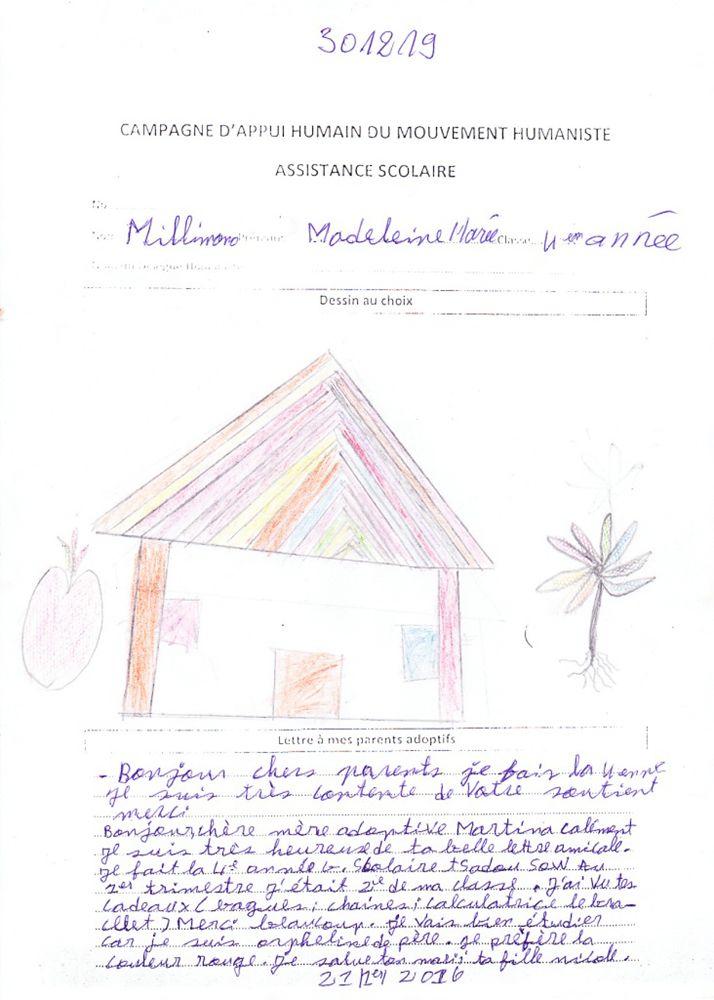 301219
CAMPAGNE D'APPUI HUMAIN DU MOUVEMENT HUMANISTE
ASSISTANCE SCOLAIRE
No
Nom Millimono Prénom Madeleine Marie Classe 4em année
Dessin au choix
Lettre à mes parents adoptifs
- Bonjour chers parents je fais la 4enne
Je suis très contente de votre soutient
merci
Bonjour chère mère adoptive Martina calément
Je suis très heureuse de ta belle lettre amicale.
Je fait la 4e année b. Scolaire tSadou Sow Au
2er trimestre j'était 2ie de ma classe. J'ai vu tes
cadeaux (bagues; chaines; calculatrice le bra-
cllet) Merci beaucoup. Je vais bien étudier
car je suis orpheline de père. Je préfère la
couleur rouge. Je salue ton mari; ta fille nicole.
2016